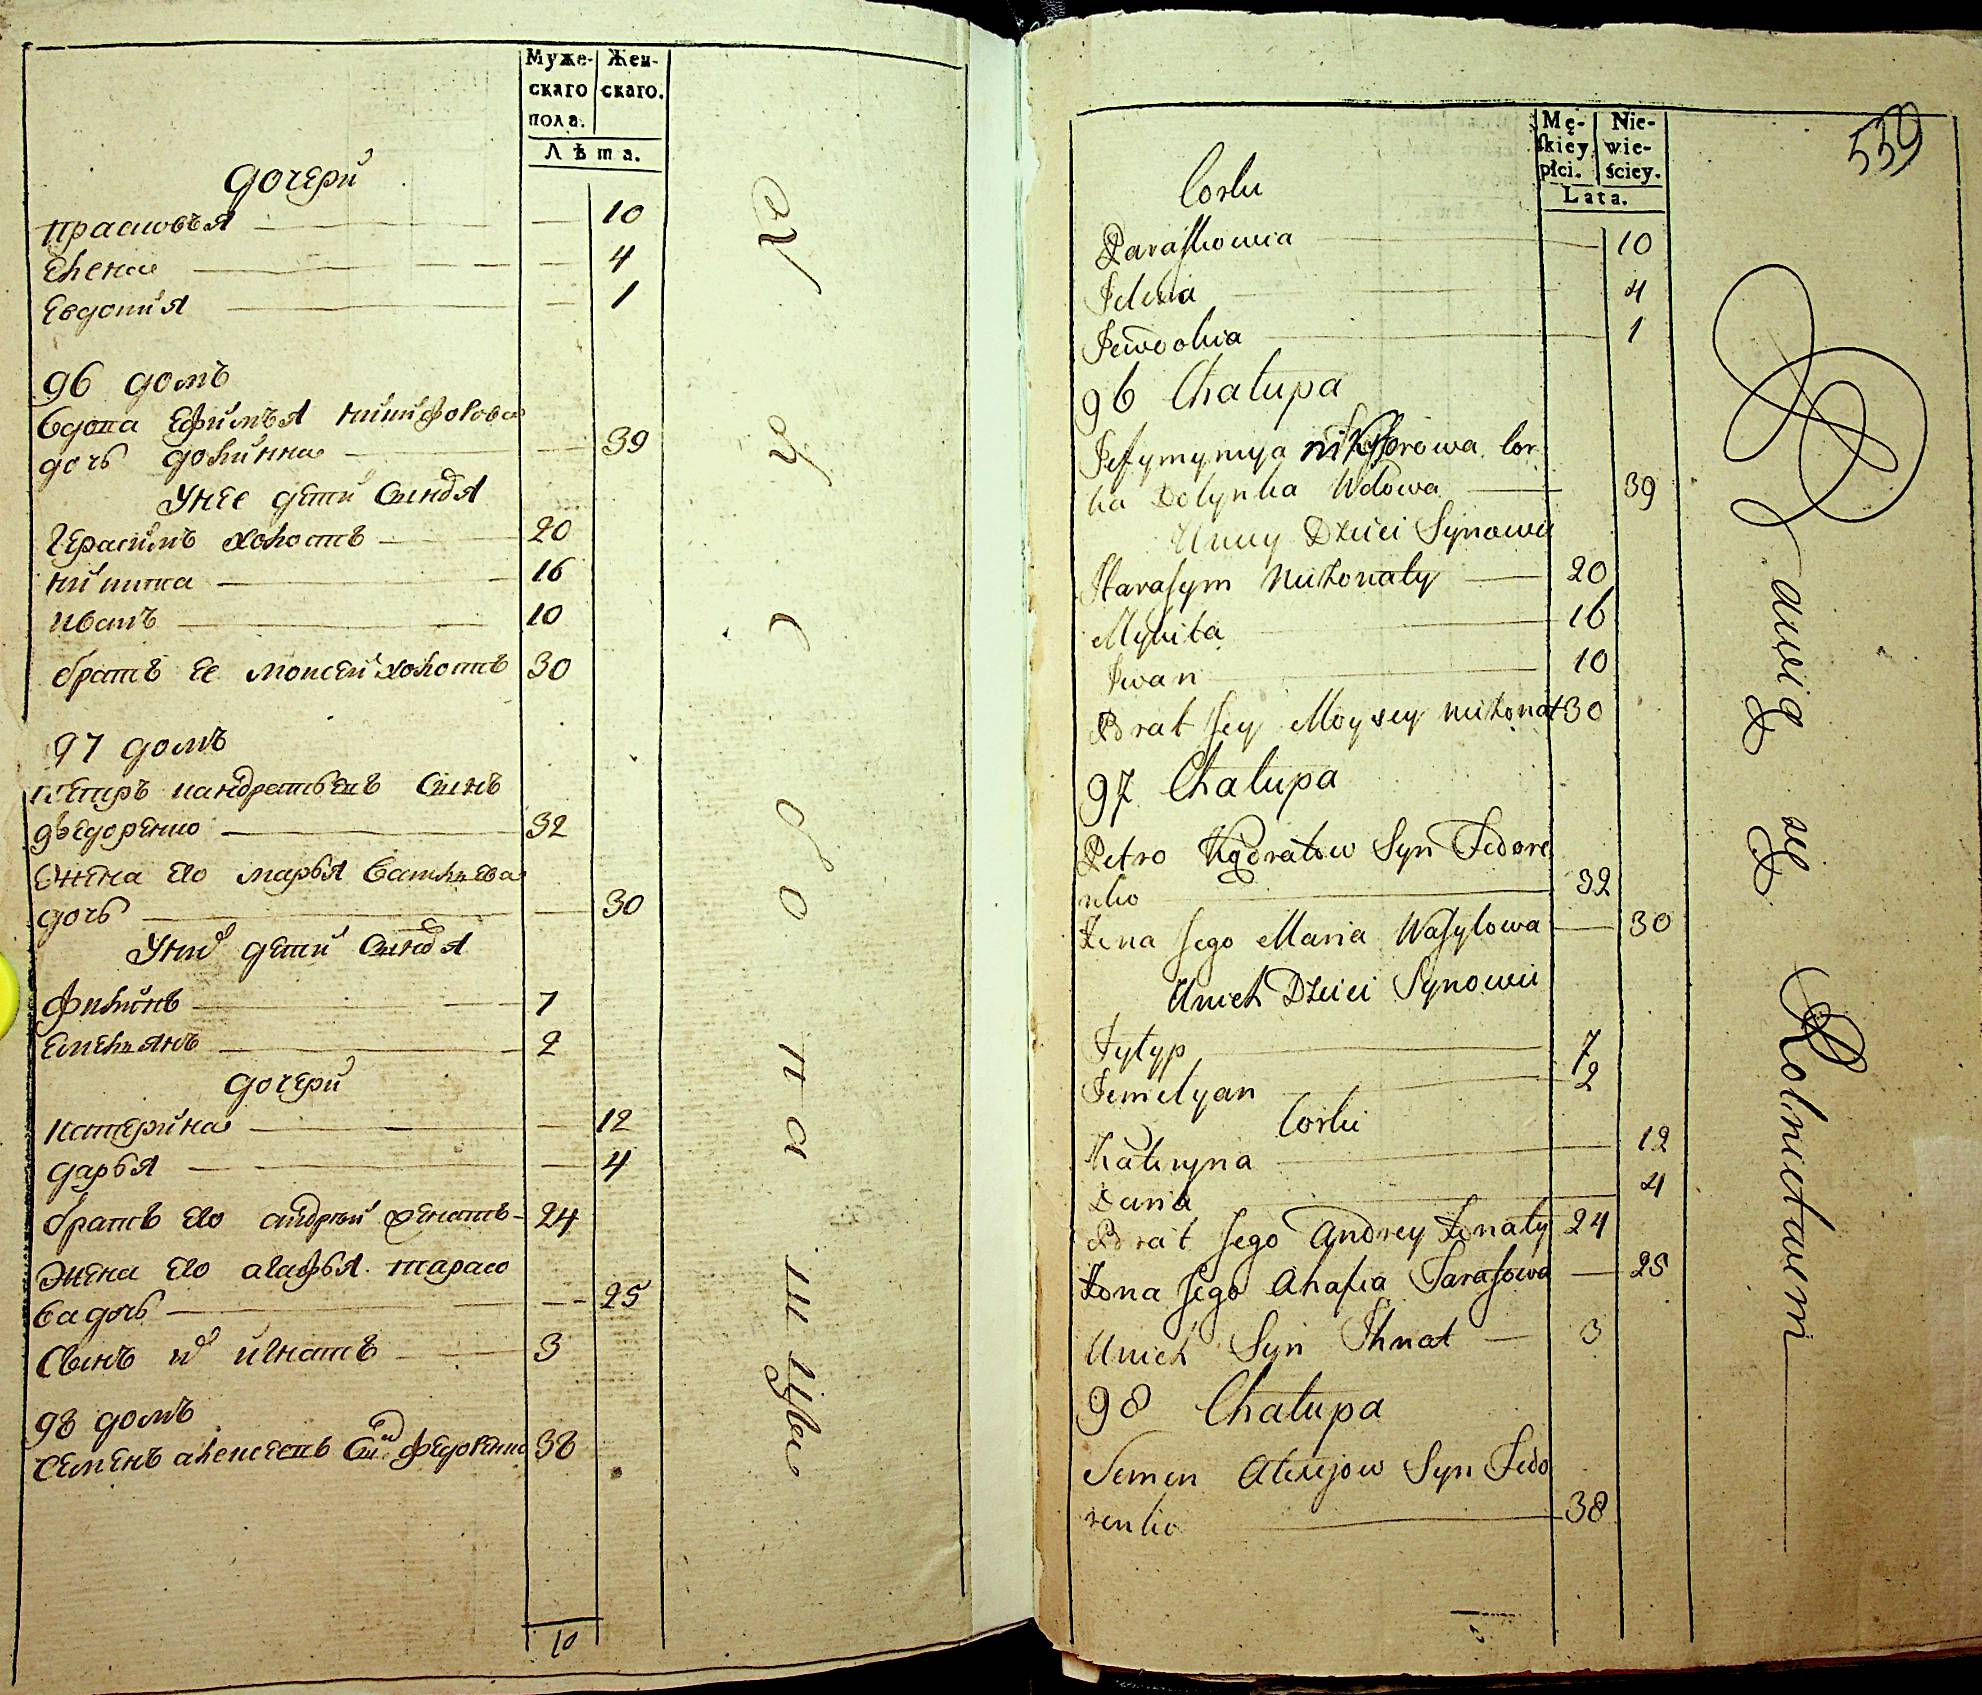 Муже-
скаго
пола.
Жен-
скаго.
Лѣта.
дочери
прасковъя 10
Елена 4
Евдокия 1
96 домъ
вдова Ефимъя никифорова
дочь долинна 39
У нее дети сыновя
Герасимъ холостъ 20
никитка 16
иванъ 10
братъ ее моисей холостъ 30
97 домъ
петръ кандратьевъ сынъ
федоренко 32
жена его марья васильева
дочь 30
У них дети сыновя
филипъ 7
Емельянъ 2
дочери
катерина 12
дарья 4
братъ его андрей женатъ 24
жена его агафья тарасо
ва дочь 25
Сынъ их игнатъ 3
98 домъ
семенъ алексеевъ сын федоренко 38
10
хлебопашцы
539
Mę-
skiey
płci.
Nie-
wie-
ściey.
Lata.
Corki
Paraskowia 10
Jelena 4
Jewdokia 1
96 Chalupa
Jefymymya nikyforowa cor
ka Dolynka Wdowa 39
U niey Dzieci Synowie
Harasym nieżonaty 20
Mykita 16
Iwan 10
Brat Jey Moysey nieżonat 30
97 Chalupa
Petro Kądratow Syn Fedore
nko 32
Żona Jego Maria Wasylowa 30
U nich Dzieci Synowie
Fylyp 7
Jemelyan 2
Corki
Kateryna 12
Daria 4
Brat Jego Andrey Żonaty 24
Żona Jego Ahafia Tarasowa 25
U nich Syn Ihnat 3
98 Chalupa
Semen Alexejow Syn Fedo
renko 38
Bawią się Rolnictwem